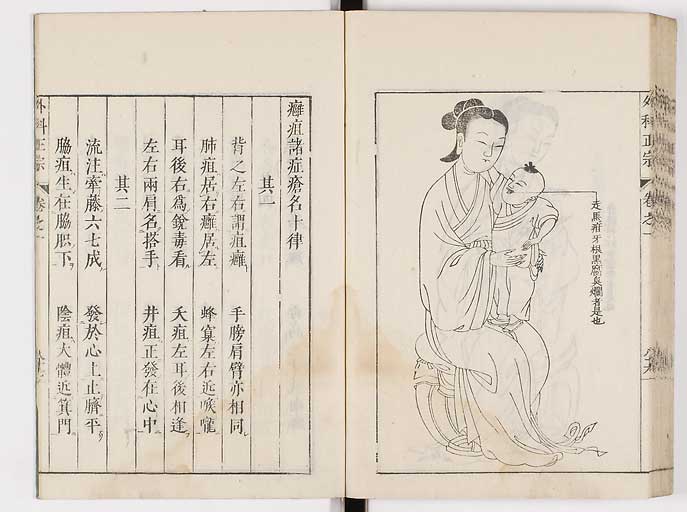 外科正宗 卷之一
走馬疳牙根黑腐臭爛者是也
癰疽諸症瘡名十律
其一
背之左右謂疽癰 手膀肩臂亦相同
肺疽居右癰居左 蜂窠左右近喉嚨
耳後右爲銳毒看 夭疽左耳後相逢
左右兩肩名搭手 井疽正發在心中
其二
流注牽藤六七成 發於心上止臍平
脇疽生在脇肥下 陰疽大體近箕門
外科正宗 卷之一